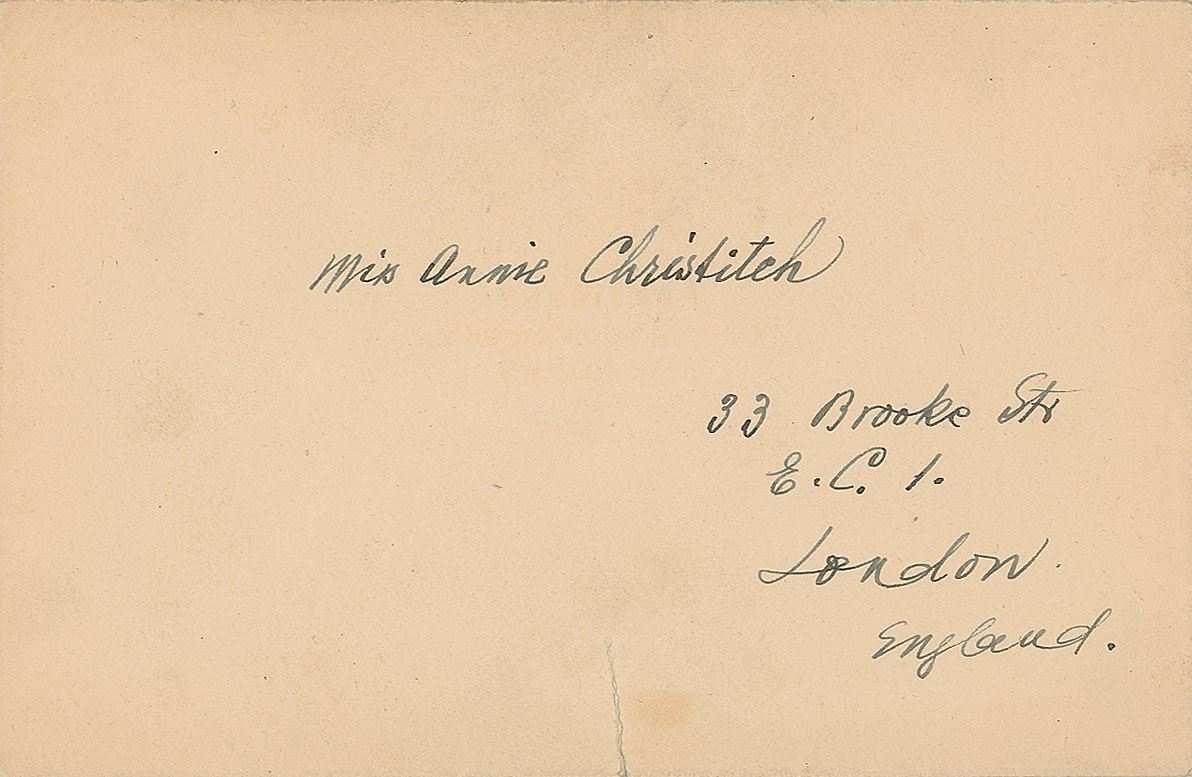 Miss Annie Christitch
33 Brooke Str
E.C. 1.
London.
England.